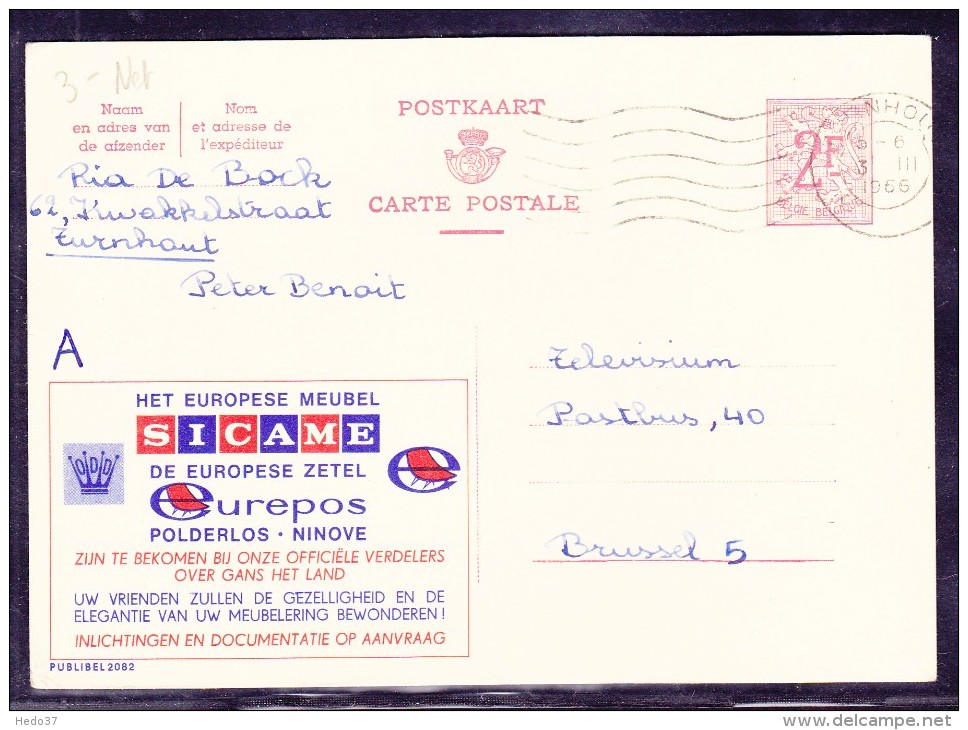 3 - Net
Naam
en adres van
de afzender
Nom
et adresse de
l'expéditeur
POSTKAART
CARTE POSTALE
2F
BELGIE BELGIQUE
6
3 III
1966
Ria De Bock
62, Kwakkelstraat
Turnhout
Peter Benoit
A
HET EUROPESE MEUBEL
SICAME
DE EUROPESE ZETEL
eurepos
POLDERLOS · NINOVE
ZIJN TE BEKOMEN BIJ ONZE OFFICIËLE VERDELERS
OVER GANS HET LAND
UW VRIENDEN ZULLEN DE GEZELLIGHEID EN DE
ELEGANTIE VAN UW MEUBELERING BEWONDEREN !
INLICHTINGEN EN DOCUMENTATIE OP AANVRAAG
PUBLIBEL 2082
Televisium
Postbus, 40
Brussel 5
Hedo37
www.delcampe.net